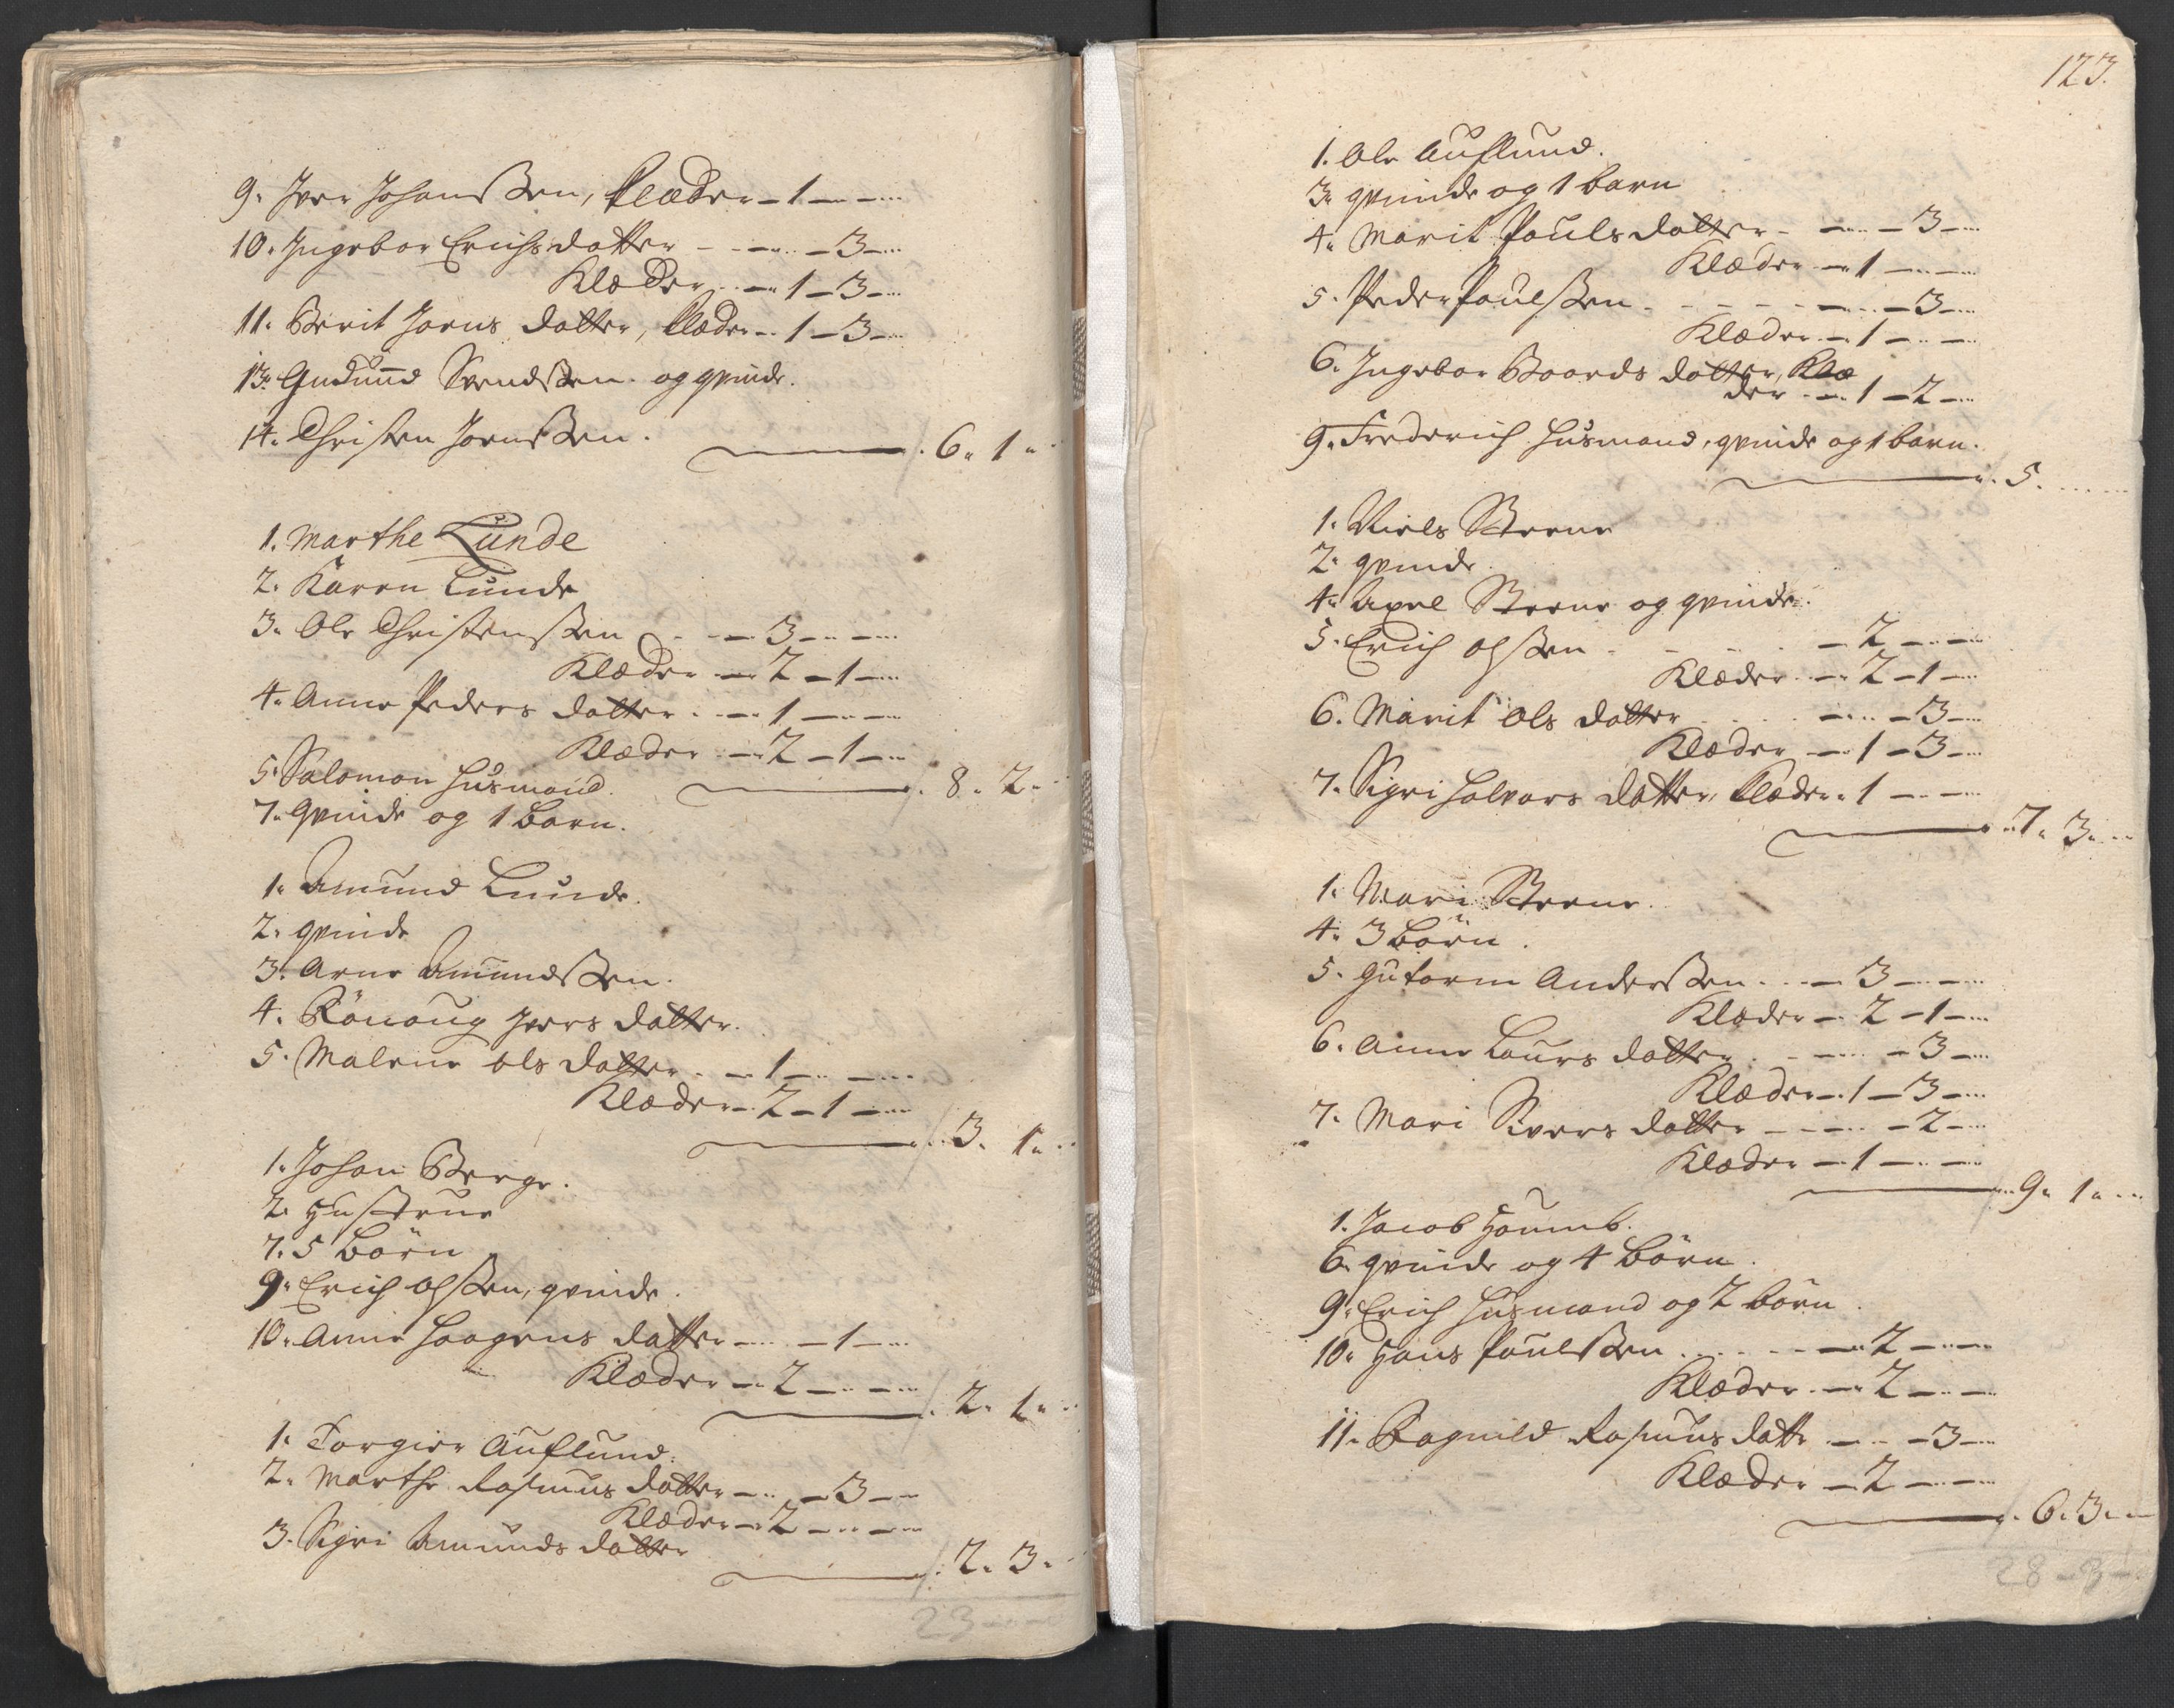 9. Iver Johanssen, Klæder – 1 – –
10. Ingebor Erichsdatter – – – 3 –
Klæder – 1 – 3 –
11. Berit Joens datter, klæder – 1 – 3 –
13. Gudmund Svendssen og qvinde.
14. Christen Joenssen.
6. 1.
1. Marthe Lunde
2. Karen Lunde
3. Ole Christenssen – 3 – –
Klæder – 2 – 1 –
4. Anne Peders datter – 1 – –
Klæder – 2 – 1 –
5. Salomon Husmand.
8. 2.
7. Qvinde og 1 barn.
1. Amund Lunde.
2. qvinde
3. Arne Amundssen.
4. Rönoug Ivers datter.
5. Malene Ols datter – 1 – –
Klæder – 2 – 1 –
3. 1.
1. Johan Berge.
2. Hustrue
7. 5 börn
9. Erich Olssen, qvinde.
10. Anne Haagens datter – – 1 –
Klæder – 2 – –
2. 1.
1. Torgier Auflund.
2. Marthe Rasmus datter – – 3 –
Klæder – 2 – –
3. Sigri Amunds datter
2. 3.
23 – –
123.
1. Ole Auflund.
3. qvinde og 1 barn
4. Marit Pouls datter – – – 3 –
Klæder – 1 – –
5. Peder Poulssen – – – 3 –
Klæder – 1 – –
6. Ingebor Baards datter, Klæ
der – 1 – 2 –
9. Frederich Husmand, qvinde og 1 barn.
5.
1. Niels Steene
2. qvinde.
4. Axel Steene og qvinde.
5. Erich Olssen – 2 – –
Klæder – 2 – 1 –
6. Marit Ols datter – – 3 –
Klæder – 1 – 3 –
7. Sigri Halvors datter, Klæder. 1 – –
7. 3.
1. Mari Steene.
4. 3 börn.
5. Gutorm Anderssen – 3 – –
Klæder – 2 – 1 –
6. Anne Lours datter – – 3 –
Klæder – 1 – 3 –
7. Mari Sivers datter – – – 2 –
Klæder – 1 – –
9. 1.
1. Jacob Houmb.
6. qvinde og 4 börn.
9. Erich Husmand og 2 börn.
10. Hans Poulssen – 2 – –
Klæder – 2 – –
11. Ragnild Rasmus datt – – 3 –
Klæder – 2 – –
6. 3.
28 – 3 –